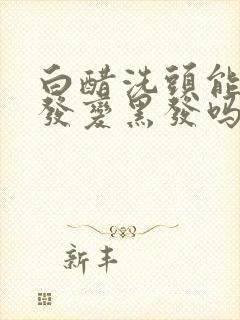 白醋洗頭能
發變黑發嗎
新丰